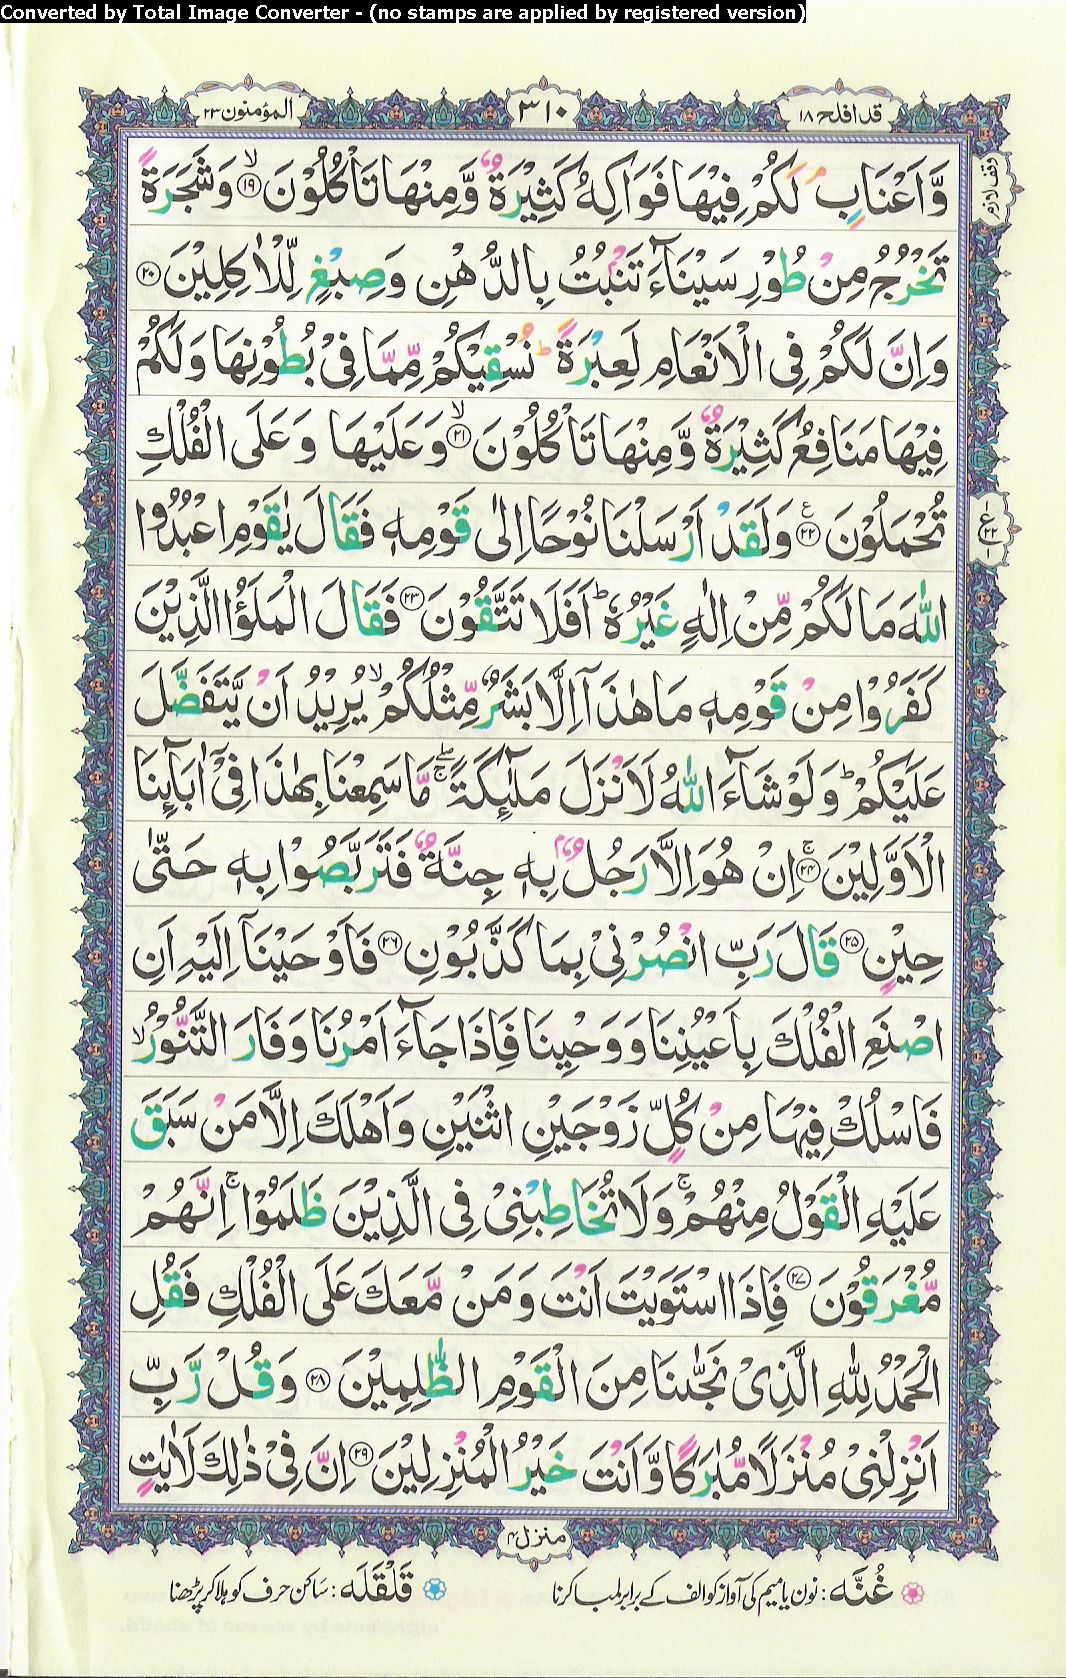 Converted by Total Image Converter - (no stamps are applied by registered version)
قد افلح ١٨
٣١٠
المؤمنون ٢٣
وقف لازم
وَّاَعْنَابٍ ۘ لَكُمْ فِيْهَا فَوَاكِهُ كَثِيْرَةٌ وَّمِنْهَا تَاْكُلُوْنَ ۙ﴿۱۹﴾ وَشَجَرَةً
تَخْرُجُ مِنْ طُوْرِ سَيْنَآءَ تَنْۢبُتُ بِالدُّهْنِ وَصِبْغٍ لِّلْاٰكِلِيْنَ ﴿۲۰﴾
وَاِنَّ لَكُمْ فِى الْاَنْعَامِ لَعِبْرَةً ؕ نُسْقِيْكُمْ مِّمَّا فِىْ بُطُوْنِهَا وَلَكُمْ
فِيْهَا مَنَافِعُ كَثِيْرَةٌ وَّمِنْهَا تَاْكُلُوْنَ ۙ﴿۲۱﴾ وَعَلَيْهَا وَعَلَى الْفُلْكِ
تُحْمَلُوْنَ ﴿۲۲﴾ وَلَقَدْ اَرْسَلْنَا نُوْحًا اِلٰى قَوْمِهٖ فَقَالَ يٰقَوْمِ اعْبُدُوا
ع
٢٢
اللّٰهَ مَا لَكُمْ مِّنْ اِلٰهٍ غَيْرُهٗ ؕ اَفَلَا تَتَّقُوْنَ ﴿۲۳﴾ فَقَالَ الْمَلَؤُا الَّذِيْنَ
كَفَرُوْا مِنْ قَوْمِهٖ مَا هٰذَاۤ اِلَّا بَشَرٌ مِّثْلُكُمْ ۙ يُرِيْدُ اَنْ يَّتَفَضَّلَ
عَلَيْكُمْ ؕ وَلَوْ شَآءَ اللّٰهُ لَاَنْزَلَ مَلٰٓئِكَةً ۖۚ مَّا سَمِعْنَا بِهٰذَا فِىْۤ اٰبَآئِنَا
الْاَوَّلِيْنَ ۚ﴿۲۴﴾ اِنْ هُوَ اِلَّا رَجُلٌۢ بِهٖ جِنَّةٌ فَتَرَبَّصُوْا بِهٖ حَتّٰى
حِيْنٍ ﴿۲۵﴾ قَالَ رَبِّ انْصُرْنِىْ بِمَا كَذَّبُوْنِ ﴿۲۶﴾ فَاَوْحَيْنَاۤ اِلَيْهِ اَنِ
اصْنَعِ الْفُلْكَ بِاَعْيُنِنَا وَوَحْيِنَا فَاِذَا جَآءَ اَمْرُنَا وَفَارَ التَّنُّوْرُ ۙ
فَاسْلُكْ فِيْهَا مِنْ كُلٍّ زَوْجَيْنِ اثْنَيْنِ وَاَهْلَكَ اِلَّا مَنْ سَبَقَ
عَلَيْهِ الْقَوْلُ مِنْهُمْ ۚ وَلَا تُخَاطِبْنِىْ فِى الَّذِيْنَ ظَلَمُوْا ۚ اِنَّهُمْ
مُّغْرَقُوْنَ ﴿۲۷﴾ فَاِذَا اسْتَوَيْتَ اَنْتَ وَمَنْ مَّعَكَ عَلَى الْفُلْكِ فَقُلِ
الْحَمْدُ لِلّٰهِ الَّذِىْ نَجّٰىنَا مِنَ الْقَوْمِ الظّٰلِمِيْنَ ﴿۲۸﴾ وَقُلْ رَّبِّ
اَنْزِلْنِىْ مُنْزَلًا مُّبٰرَكًا وَّاَنْتَ خَيْرُ الْمُنْزِلِيْنَ ﴿۲۹﴾ اِنَّ فِىْ ذٰلِكَ لَاٰيٰتٍ
منزل ٤
غُنَّه : نون یا میم کی آواز کو الف کے برابر لمبا کرنا
قَلْقَلَه : ساکن حرف کو ہلا کر پڑھنا